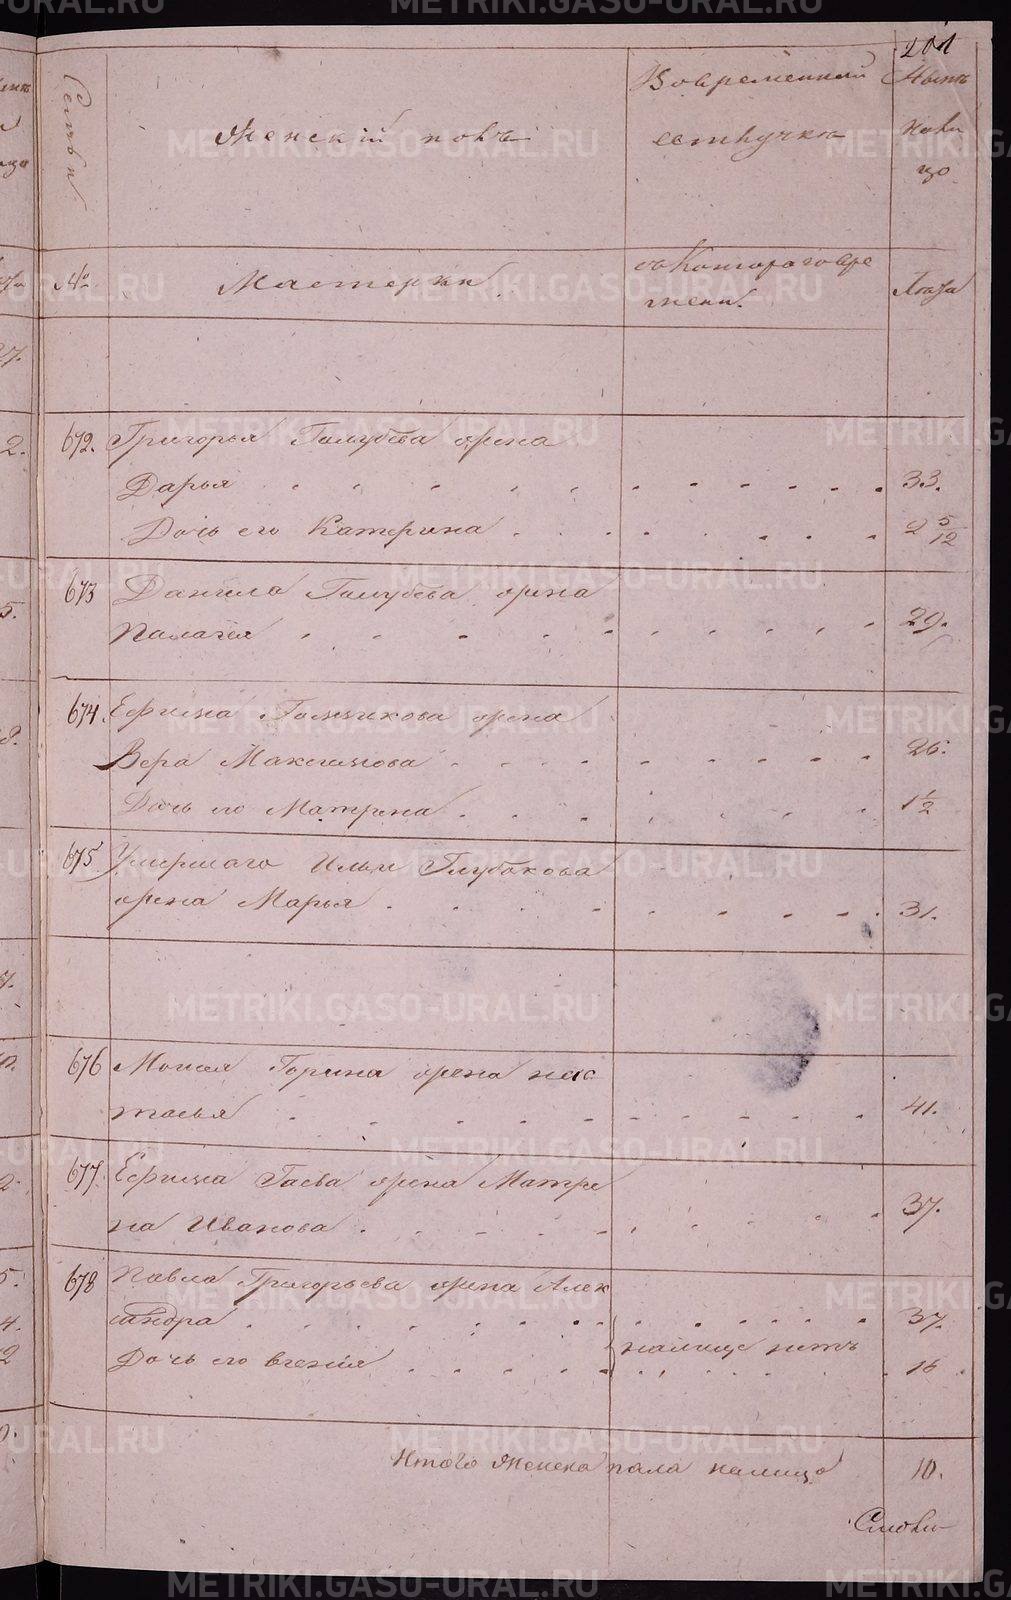 201
Семьи
Женский полъ
Вовременной
отлучкѣ
Нынѣ
нали
цо
№
Мастерки
съ Котораго вре
мени.
Лѣта
672. Григорья Голубева жена
Дарья 33.
Дочь его Катерина 2 5/12
673 Данила Голубева жена
Палагея 29.
674. Ефима Голикова жена
Вера Максимова 26.
Дочь его Матрена 1 1/2
675 Умершаго Ильи Глубокова
жена Марья 31.
676 Мокея Горина жена Нас
тасья 41.
677. Ефима Гаева жена Матре
на Иванова 37.
678 Павла Григорьева жена Алек
сандра 37.
налице нѣтъ
Дочь его Евгенія 16
Итого Женска пола налицо 10.
METRIKI.GASO-URAL.RU